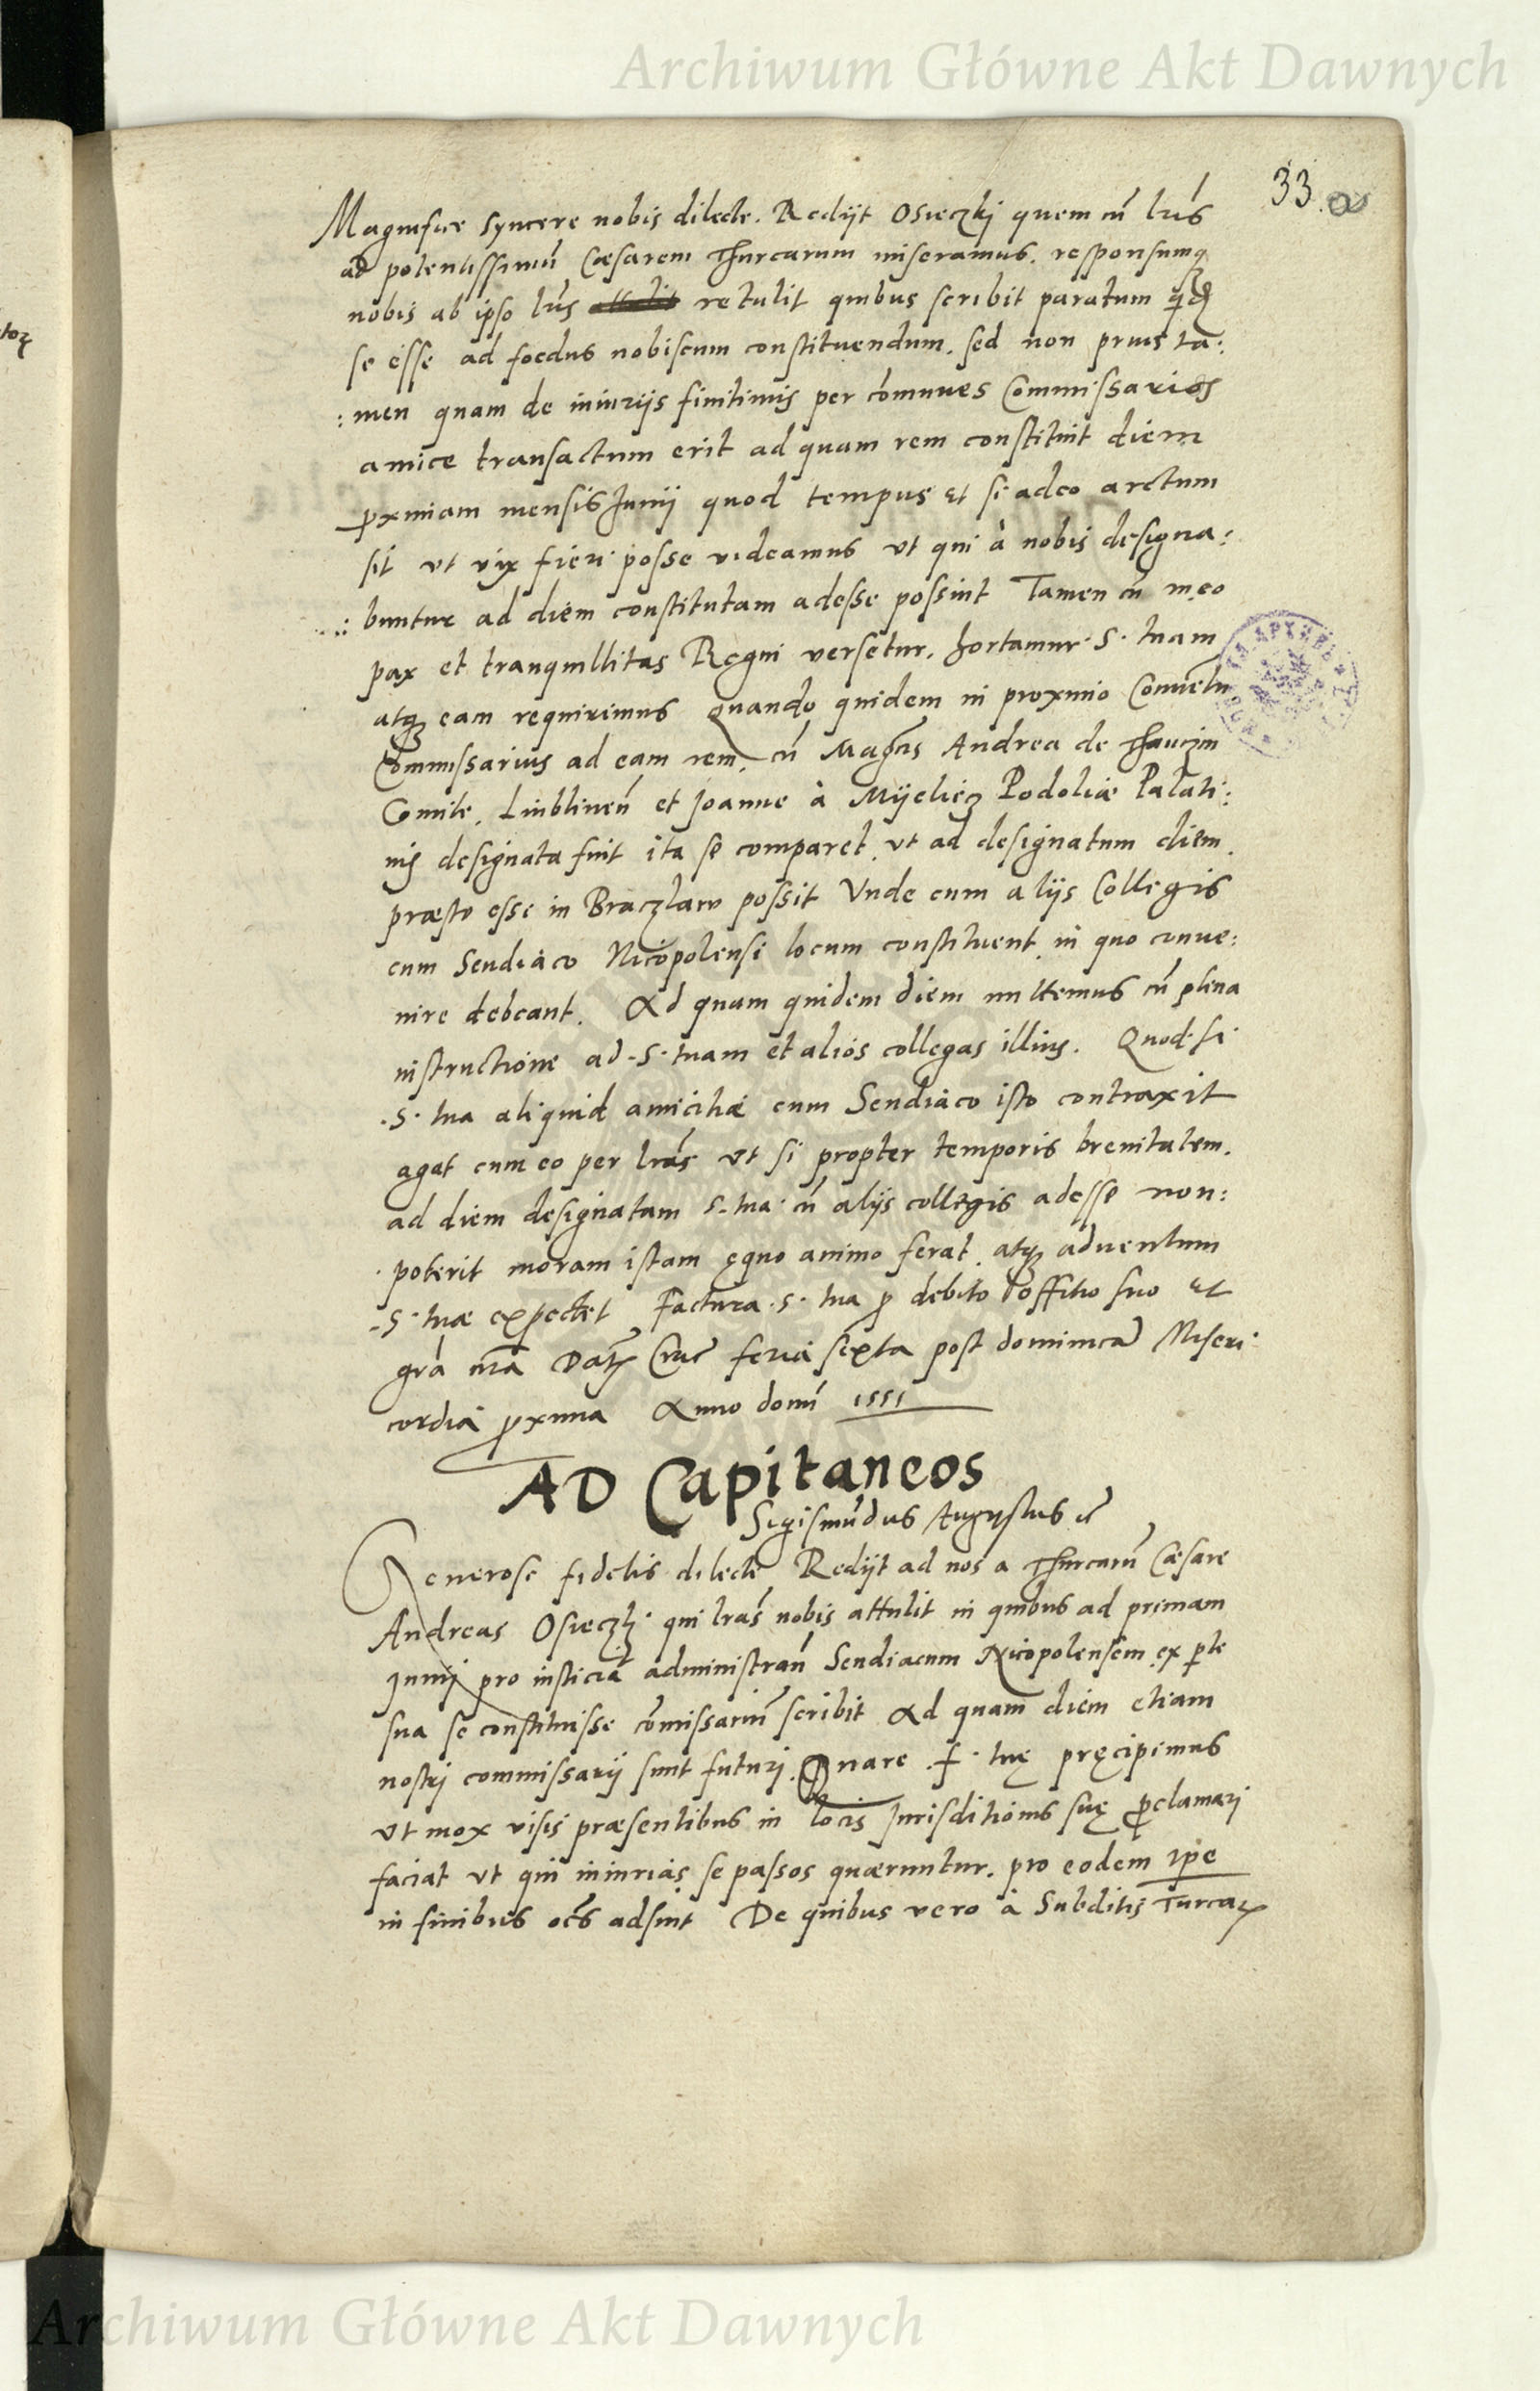 Archiwum Główne Akt Dawnych
33.
Magnifice syncere nobis dilecte. Redijt Osieczkj quem cū lrīs
ad potentissimū Cæsarem Thurcarum miseramus. responsumq
nobis ab ipso lrīs retulit quibus scribit paratum qđ
se esse ad foedus nobiscum constituendum. sed non prius ta:
:men quam de iniurijs finitimis per cōmunes Commissarios
amice transactum erit ad quam rem constituit diem
pximam mensis Junij quod tempus et si adeo arctum
sit vt vix fieri posse videamus vt qui à nobis designa:
:buntur ad diem constitutam adesse possint Tamen cū in eo
pax et tranquillitas Regni versetur. hortamur .S. tuam
atq eam requirimus Quando quidem in proximo Conuētu
Commissarius ad eam rem, cū Magcis Andrea de Thanczin
Comite. Lublineñ et Joanne à Myelicz Podoliæ Palati:
nis designata fuit ita se comparet. vt ad designatum diem
præsto esse in Braczlaw possit Vnde cum alijs Collegis
cum Sendiaco Nicopolensi locum constituent in quo conue:
nire debeant. Ad quam quidem diem mittemus cū plena
instructione ad .S. tuam et alios collegas illius. Quod si
.S. tua aliquid amicitiæ cum Sendiaco isto contraxit
agat cum eo per lrās vt si propter temporis breuitatem.
ad diem designatam S. tua cū alijs collegis adesse non:
poterit moram istam ęquo animo ferat. atq aduentum
.S. tuæ expectet Factura .S. tua p debito offitio suo et
grā nrā Datƺ Crac feria sexta post dominicā Miseri
cordia pxima Anno domī 1551
AD Capitaneos
Sigismūdus Augustus ec
Generose fidelis dilecte Redijt ad nos a Thurcarū Cæsare
Andreas Osieczkj qui lrās nobis attulit in quibus ad primam
Junij pro iusticia administrań Sendiacum Nicopolensem ex pte
sua se constituisse cōmissariū scribit Ad quam diem etiam
nostri commissarij sunt futuri. Quare .f. tuę pręcipimus
vt mox visis præsentibus in locis Jurisditionis suę pclamari
faciat vt qui iniurias se passos quæruntur. pro eodem tpe
in finibus oēs adsint De quibus vero à Subditis Turcaꝝ
Archiwum Główne Akt Dawnych